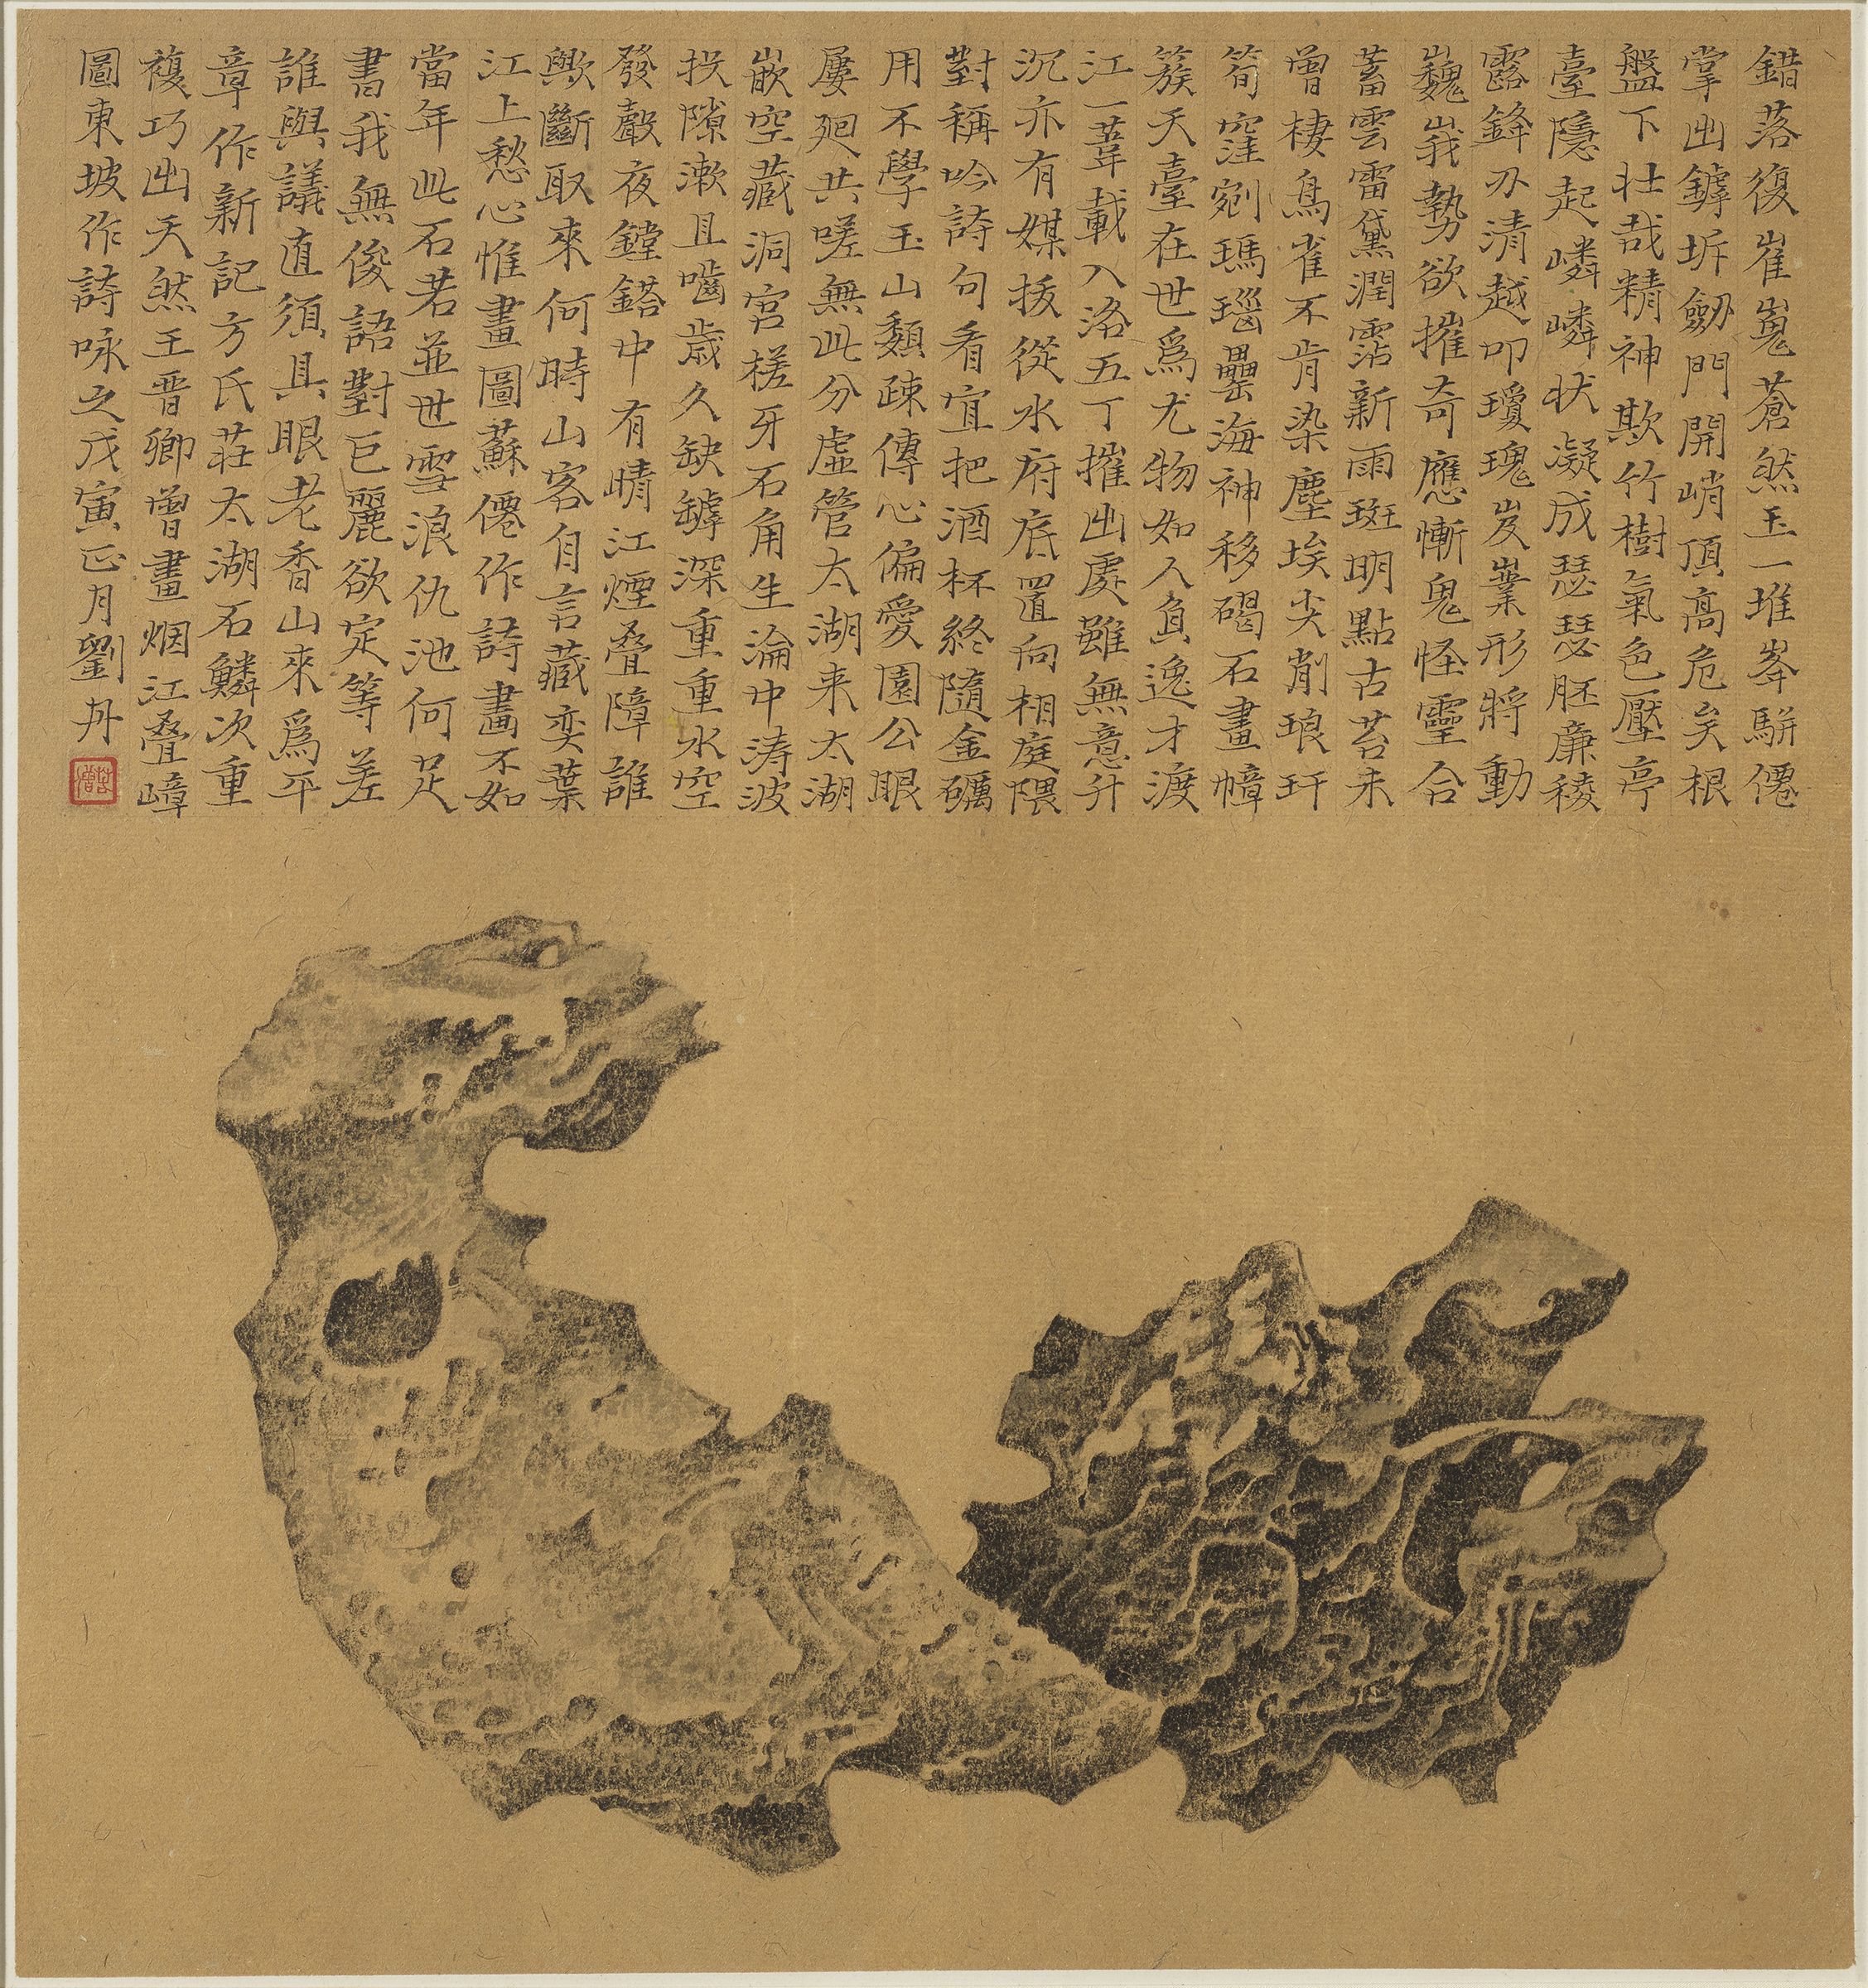 錯落復崔嵬蒼然玉一堆峯駢僊
掌出罅坼劒門開峭頂髙危矣根
盤下壮哉精神欺竹樹氣色壓亭
臺隱起嶙嶙状凝成瑟瑟胚廉稜
露鋒刃清越叩瓊瑰岌嶪形將動
巍峩勢欲摧奇應慚鬼怪靈合
蓄雲雷黛潤霑新雨斑明點古苔未
曾棲鳥雀不肯染塵埃尖削琅玕
筍窪剜瑪瑙罍海神移碣石畫幛
簇天臺在世爲尤物如人負逸才渡
江一葦載入洛五丁摧出處雖無意升
沉亦有媒拔從水府底置向相庭隈
對稱吟詩句看宜把酒杯終隨金礪
用不學玉山頽疎傳心偏愛園公眼
屢廻共嗟無此分虛管太湖来太湖
嵌空藏洞宮槎牙石角生淪中涛波
投隙漱且嚙歲久缺罅深重重水空
發聲夜鏜鎝中有晴江煙疊障誰
歟斷取來何時山客自言藏奕葉
江上愁心惟畫圖蘇僊作詩畵不如
當年此石若並世雪浪仇池何足
書我無俊語對巨麗欲定等差
誰與議直須具眼老香山來爲平
章作新記方氏莊太湖石鱗次重
複巧出天然王晋卿曾畫烟江疊嶂
圖東坡作詩咏之戊寅正月劉丹